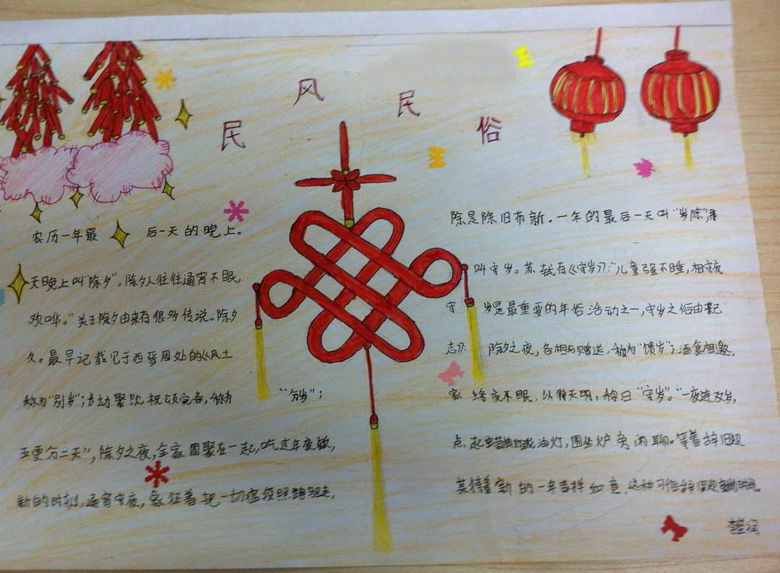 民风民俗
农历一年最后一天的晚上。
天晚上叫"除夕"。除夕人往往通宵不眠,
欢哗。"关于除夕由来有很多传说。除夕
久。最早记载见于西晋周处的《风土
称为"别岁";活动聚欢,祝颂完备,称为"分岁";
五更分二天",除夕之夜,全家团聚在一起,吃过年夜饭,
新的时刻,通宵守夜,象征着把一切瘟疫照跑驱走,
除是除旧布新。一年的最后一天叫"岁除"
叫守岁。苏轼有《守岁》:"儿童强不睡,相守夜
守岁是最重要的年俗活动之一,守岁之俗由来已
志》:除夕之夜,各相与赠送,称为"馈岁";酒食相邀,
家终夜不眠,以待天明,称曰"守岁"。"一夜连双岁,
点起蜡烛或油灯,围坐炉旁闲聊。等着辞旧迎
其待着新的一年吉祥如意。这种习俗